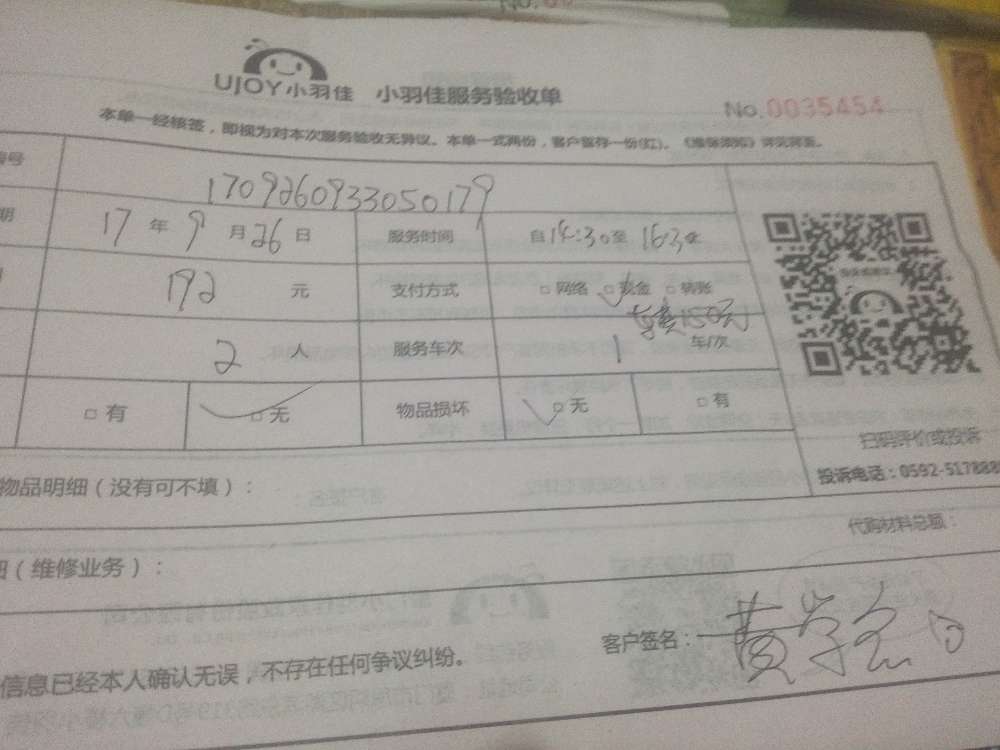 UJOY小羽佳 小羽佳服务验收单
No.0035454
本单一经核签，即视为对本次服务验收无异议。本单一式两份，客户暂存一份(红)。
号 1709260933050179
期 17 年 9 月 26 日 服务时间 自14:30至16:30
192 元 支付方式 □ 网络 □ 现金 □ 转账
150元
2 人 服务车次 1 车/次
□ 有 □ 无 物品损坏 □ 无 □ 有
扫码评价或投诉
投诉电话：0592-517888
物品明细（没有可不填）：
代购材料总额：
细（维修业务）：
客户签名：
信息已经本人确认无误，不存在任何争议纠纷。